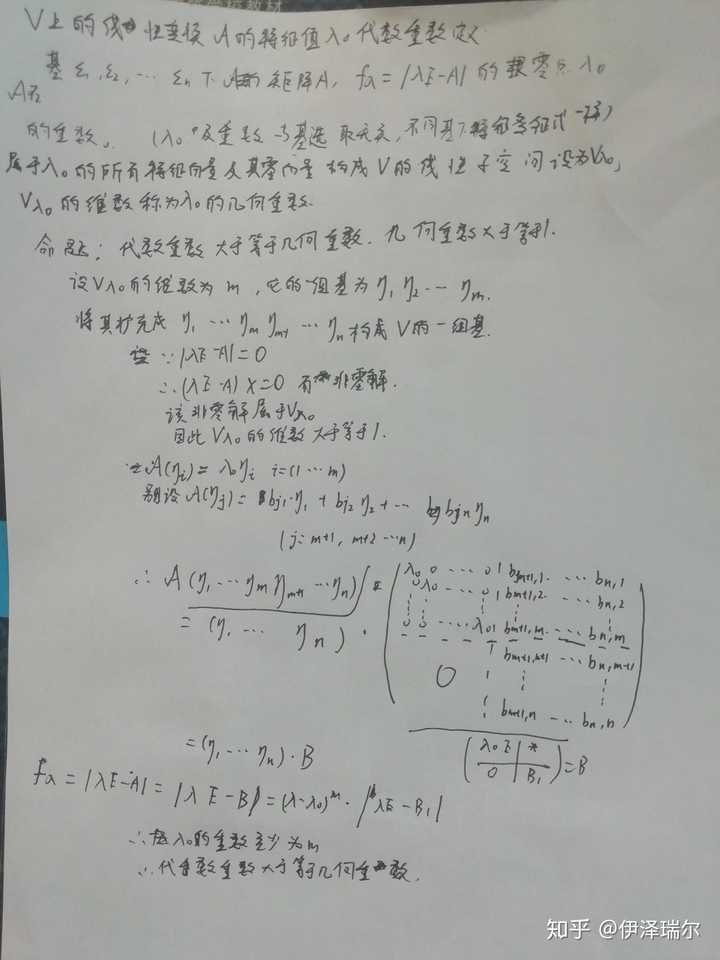 V上的线性变换A的特征值λ₀代数重数定义
基 ε₁, ε₂, ⋯ εₙ 下A的矩阵A, fλ = |λE-A| 的零点λ₀
的重数。 (λ₀及重数与基选取无关, 不同基下特征多项式一样)
属于λ₀的所有特征向量及其零向量构成V的线性子空间设为Vλ₀,
Vλ₀的维数称为λ₀的几何重数.
命题: 代数重数大于等于几何重数. 几何重数大于等于1.
设Vλ₀的维数为m, 它的一组基为η₁ η₂ ⋯ ηₘ.
将其扩充成 η₁ ⋯ ηₘ ηₘ₊₁ ⋯ ηₙ 构成V的一组基.
∵ |λE-A| = 0
∴ (λE-A)X=0 有非零解.
该非零解属于Vλ₀
因此Vλ₀的维数大于等于1.
A(ηᵢ) = λ₀ηᵢ i=(1⋯m)
别设A(ηⱼ) = bj₁·η₁ + bj₂ η₂ + ⋯ bjn ηₙ
(j= m+1, m+2 ⋯n)
∴ A(η₁ ⋯ ηₘ ηₘ₊₁ ⋯ ηₙ)
= (η₁ ⋯ ηₙ) ·
λ₀ 0 ⋯⋯ 0 | bm+1,1 ⋯ ⋯ bn,1
0 λ₀ ⋯⋯ 0 | bm+1,2 ⋯ ⋯ bn,2
0 0 ⋯⋯ λ₀ | bm+1,m ⋯ bn,m
bm+1,m+1 ⋯ bn,m+1
0
bm+1,n ⋯ bn,n
= (η₁ ⋯ ηₙ) · B
(λ₀E | * / 0 | B₁) = B
fλ = |λE-A| = |λE-B| = (λ-λ₀)ᵐ · |λE-B₁|
∴ λ₀的重数至少为m
∴ 代数重数大于等于几何重数.
知乎 @伊泽瑞尔